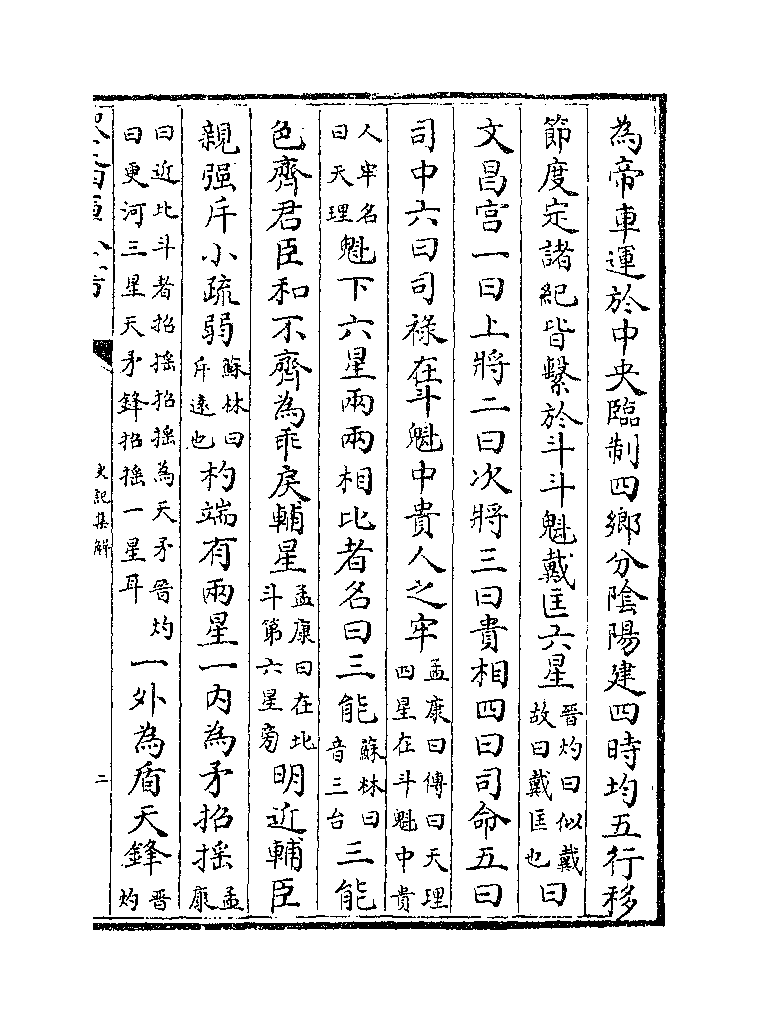 為帝車運於中央臨制四鄉分陰陽建四時均五行移
節度定諸紀皆繫於斗斗魁戴匡六星晉灼曰似戴故曰戴匡也曰
文昌宮一曰上將二曰次將三曰貴相四曰司命五曰
司中六曰司祿在斗魁中貴人之牢孟康曰傳曰天理四星在斗魁中貴
人牢名曰天理魁下六星兩兩相比者名曰三能蘇林曰音三台三能
色齊君臣和不齊為乖戾輔星孟康曰在北斗第六星旁明近輔臣
親强斥小疏弱蘇林曰斥遠也杓端有兩星一內為矛招摇孟康
曰近北斗者招摇招摇為天矛晉灼曰更河三星天矛鋒招摇一星耳一外為盾天鋒晉灼
史記集解
二